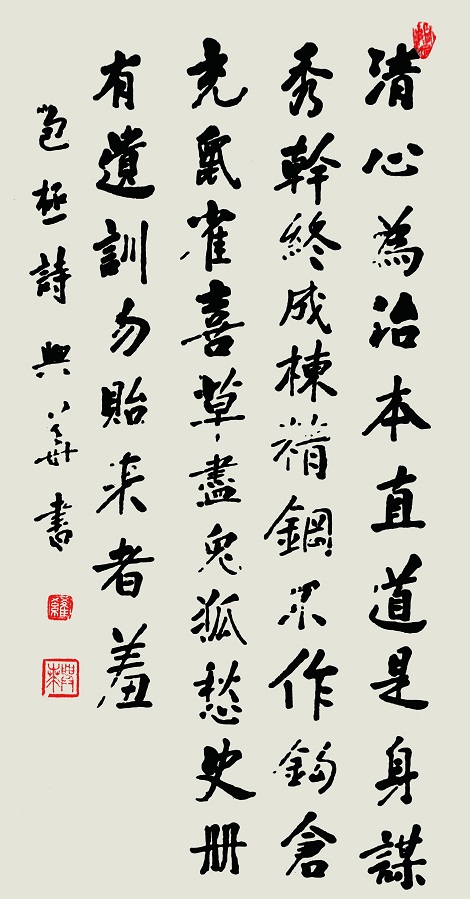 清心為治本直道是身謀
秀幹終成棟精鋼不作鉤倉
充鼠雀喜草盡兔狐愁史冊
有遺訓勿貽来者羞
包拯詩 興華書